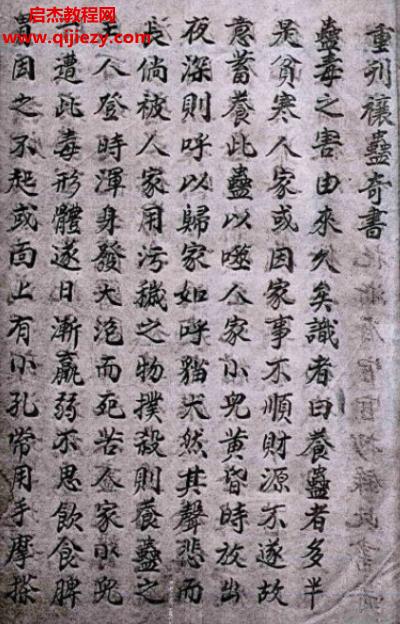 启杰
www.qijiezy.com
重刋禳蠱奇書
蠱毒之害由來久矣識者曰養蠱者多半
是貧寒人家或因家事不順財源不遂故
意蓄養此蠱以噬人家小兒黄昏時放出
夜深則呼以歸家如呼猫犬然其聲悲而
長倘被人家用污穢之物撲殺則養蠱之
主人登時渾身發大泡而死若人家小兒
一遭此毒形體遂日漸羸弱不思飲食脾
胃因之不起或面上有小孔常用手摩搽